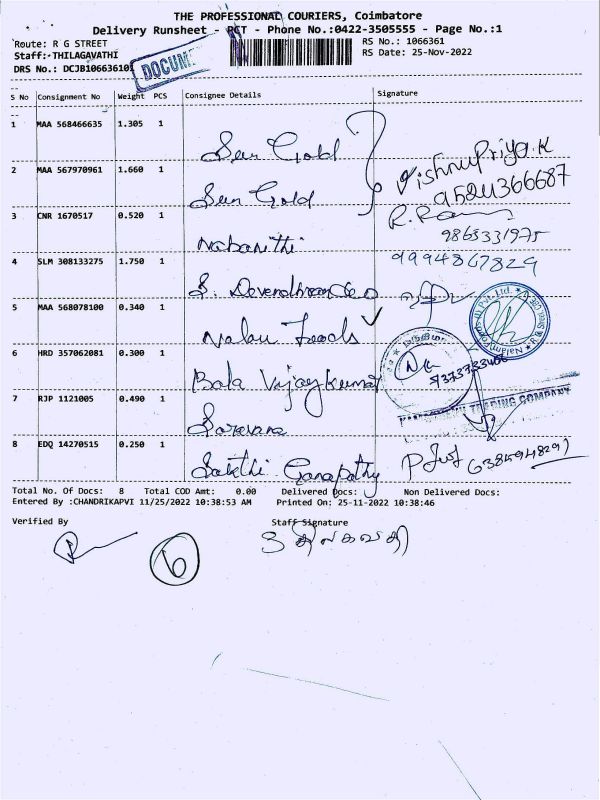 THE PROFESSIONAL COURIERS, Coimbatore
Delivery Runsheet - PCT - Phone No.:0422-3505555 - Page No.:1
Route: R G STREET
RS No.: 1066361
Staff: THILAGAVATHI
RS Date: 25-Nov-2022
DRS No.: DCJB1066361
DOCUM
S No Consignment No Weight PCS Consignee Details Signature
1 MAA 568466635 1.305 1
Sun Gold
Vishnu Priya.K
2 MAA 567970961 1.660 1
Sun Gold
3 CNR 1670517 0.520 1
Nabanithi
9865331975
4 SLM 308133275 1.750 1
9994867829
S. Devendhiran
5 MAA 568078100 0.340 1
Nalan Foods
6 HRD 357062081 0.300 1
Bala Vijaykumar
7 RJP 1121005 0.490 1
TRADING COMPANY
Saravana
8 EDQ 14270515 0.250 1
Sakthi Ganapathy
Total No. Of Docs: 8 Total COD Amt: 0.00 Delivered Docs: Non Delivered Docs:
Entered By :CHANDRIKAPVI 11/25/2022 10:38:53 AM Printed On: 25-11-2022 10:38:46
Verified By
Staff Signature
6